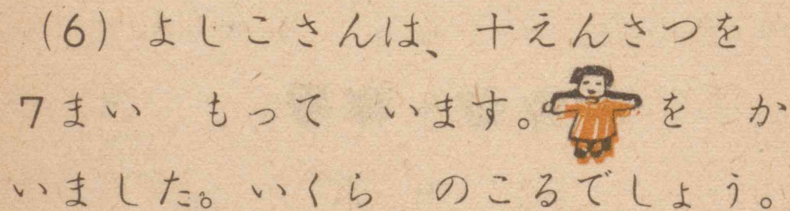 (6) よしこさんは、十えんさつを
7まい もって います。を か
いました。いくら のこるでしょう。